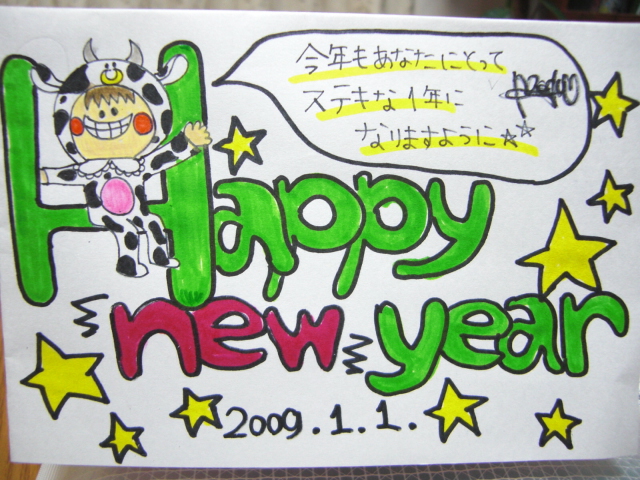 今年もあなたにとって
ステキな1年に
なりますように☆☆
Happy
new year
2009.1.1.